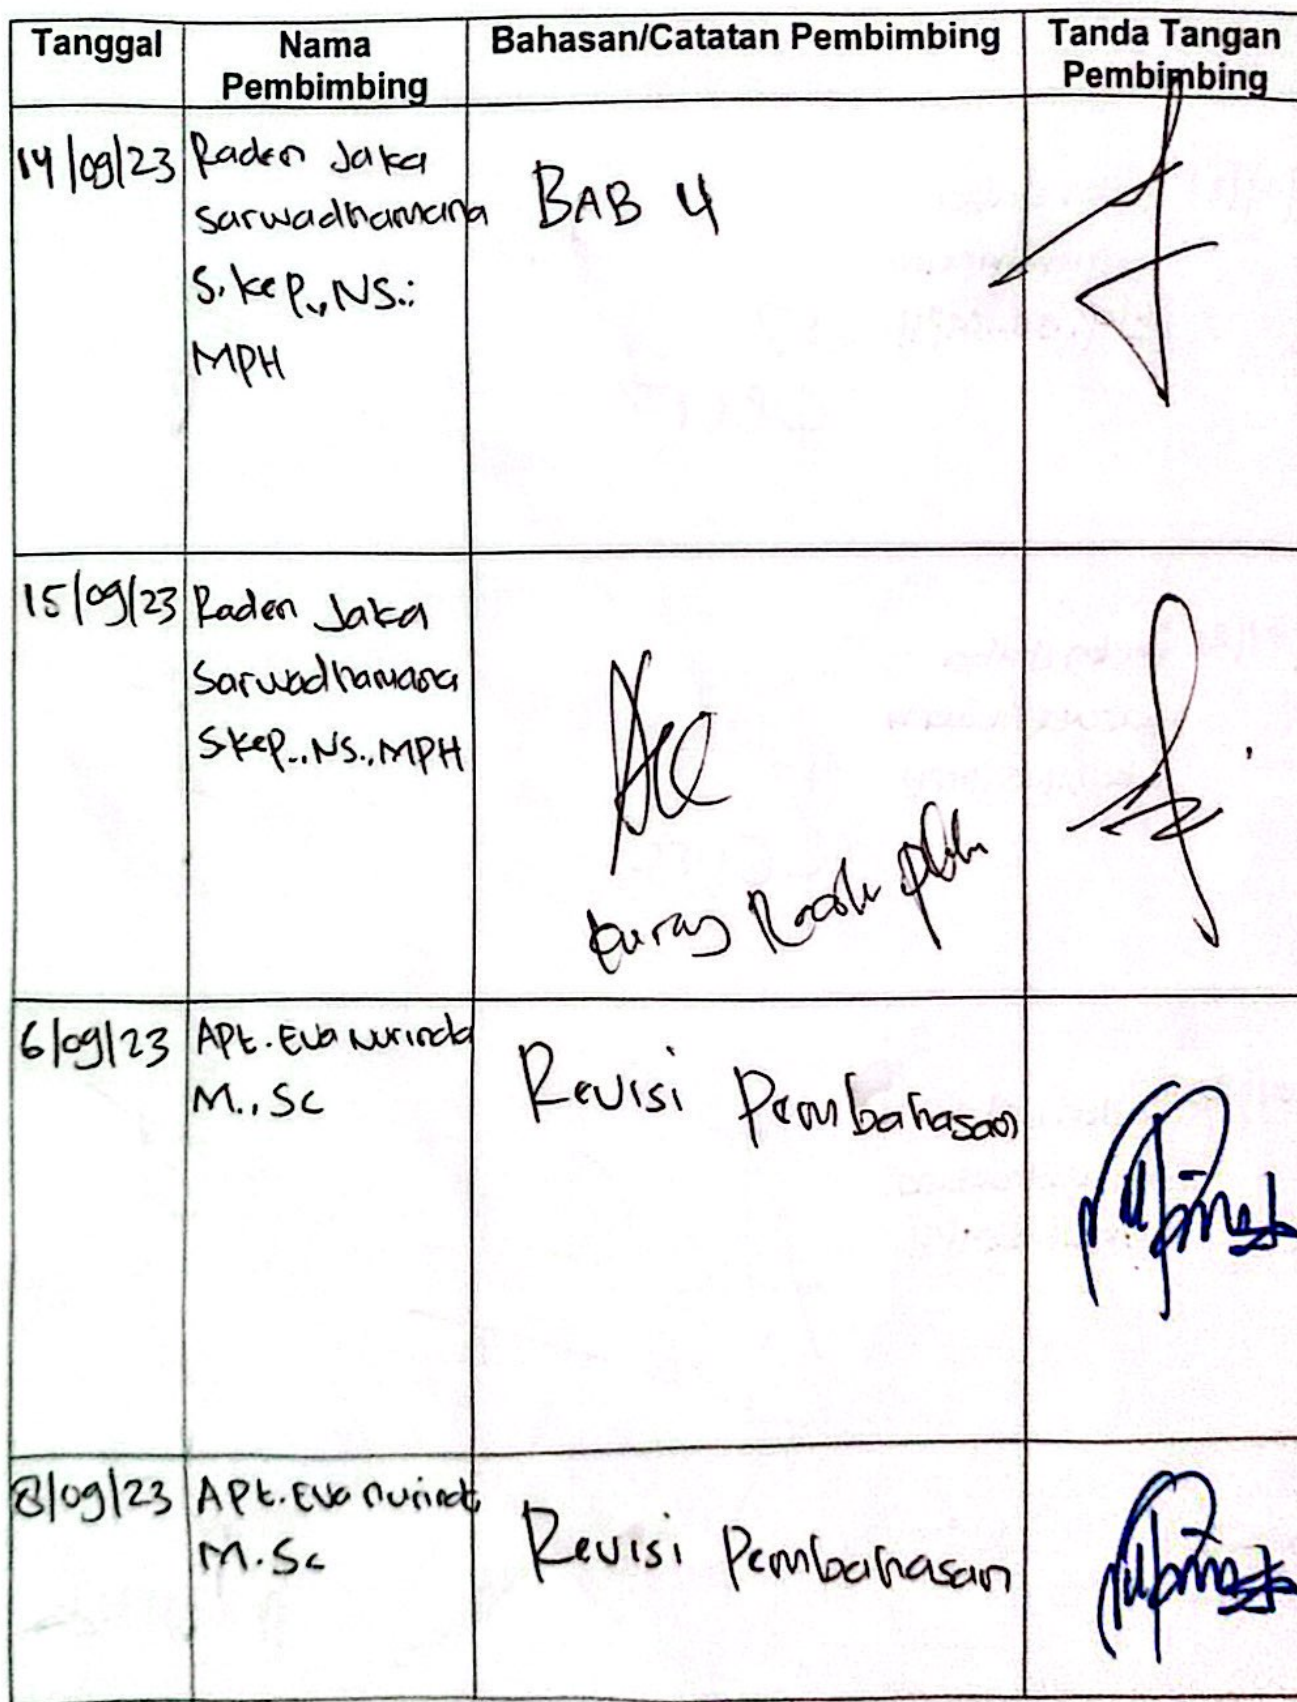 Tanggal Nama Pembimbing Bahasan/Catatan Pembimbing Tanda Tangan Pembimbing
14/09/23 Raden Jaka
Sarwadhamana
S.kep., NS.:
MPH
BAB 4
15/09/23 Raden Jaka
Sarwadhamana
Skep.,NS.,MPH
Acc
6/09/23 APt. Eva Nurinda
M., Sc
Revisi Pembahasan
8/09/23 APt. Eva nurinda
M. Sc
Revisi Pembahasan